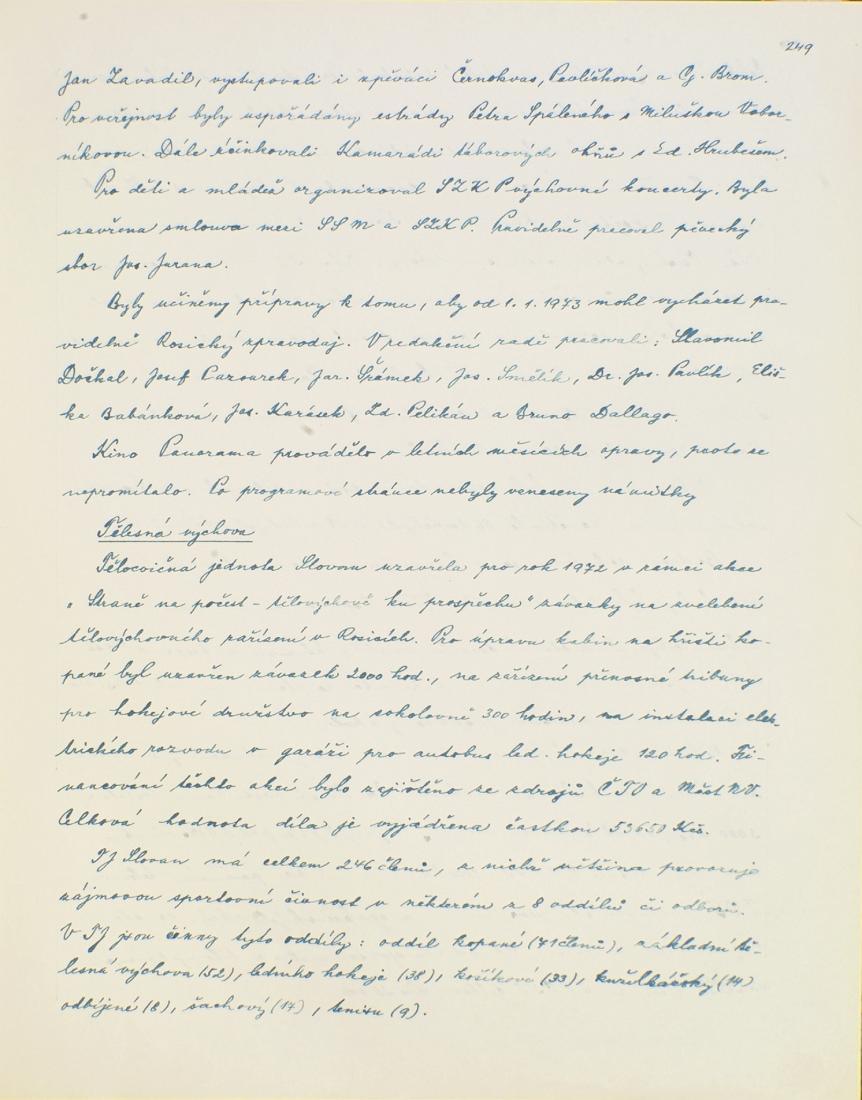 249
Jan Zavadil, vystupovali i zpěváci Černokvas, Pavlíčková a G. Brom.
Pro veřejnost byly uspořádány estrády Petra Spáleného s Miluškou Vobor-
níkovou. Dále účinkovali Kamarádi táborových ohňů s Ed. Hrubešem.
Pro děti a mládež organizoval SZK P výchovné koncerty. Byla
uzavřena smlouva mezi SSM a SZKP. Pravidelně pracoval pěvecký
sbor Jos. Jurana.
Byly učiněny přípravy k tomu, aby od 1. 1. 1973 mohl vycházet pra-
videlně Rosický zpravodaj. V redakční radě pracovali: Slavomil
Doškal, Josef Cazourek, Jar. Šrámek, Jos. Smělík, Dr. Jos. Pavlík, Eliš-
ka Babánková, Jos. Karásek, Zd. Pelikán a Bruno Dallago.
Kino Panorama provádělo v letních měsících opravy, proto se
nepromítalo. Po programové stránce nebyly vzneseny námitky
Tělesná výchova
Tělocvičná jednota Slovan uzavřela pro rok 1972 v rámci akce
"Straně na počest - tělovýchově ku prospěchu" závazky na zvelebení
tělovýchovného zařízení v Rosicích. Pro úpravu kabin na hřišti ko-
pané byl uzavřen závazek 2000 hod., na zařízení přenosné tribuny
pro hokejové družstvo na sokolovně 300 hodin, na instalaci elek-
trického rozvodu v garáži pro autobus led. hokeje 120 hod. Fi-
nancování těchto akcí bylo zajištěno ze zdrojů ČTO a Měst NV.
Celková hodnota díla je vyjádřena částkou 53650 Kčs.
TJ Slovan má celkem 246 členů, z nichž většina provozuje
zájmovou sportovní činnost v některém z 8 oddílů či odborů.
V TJ jsou činny tyto oddíly: oddíl kopané (71 členů), základní tě-
lesná výchova (52), ledního hokeje (38), košíkové (33), kuželkářský (14)
odbíjené (8), šachový (17), tenisu (9).